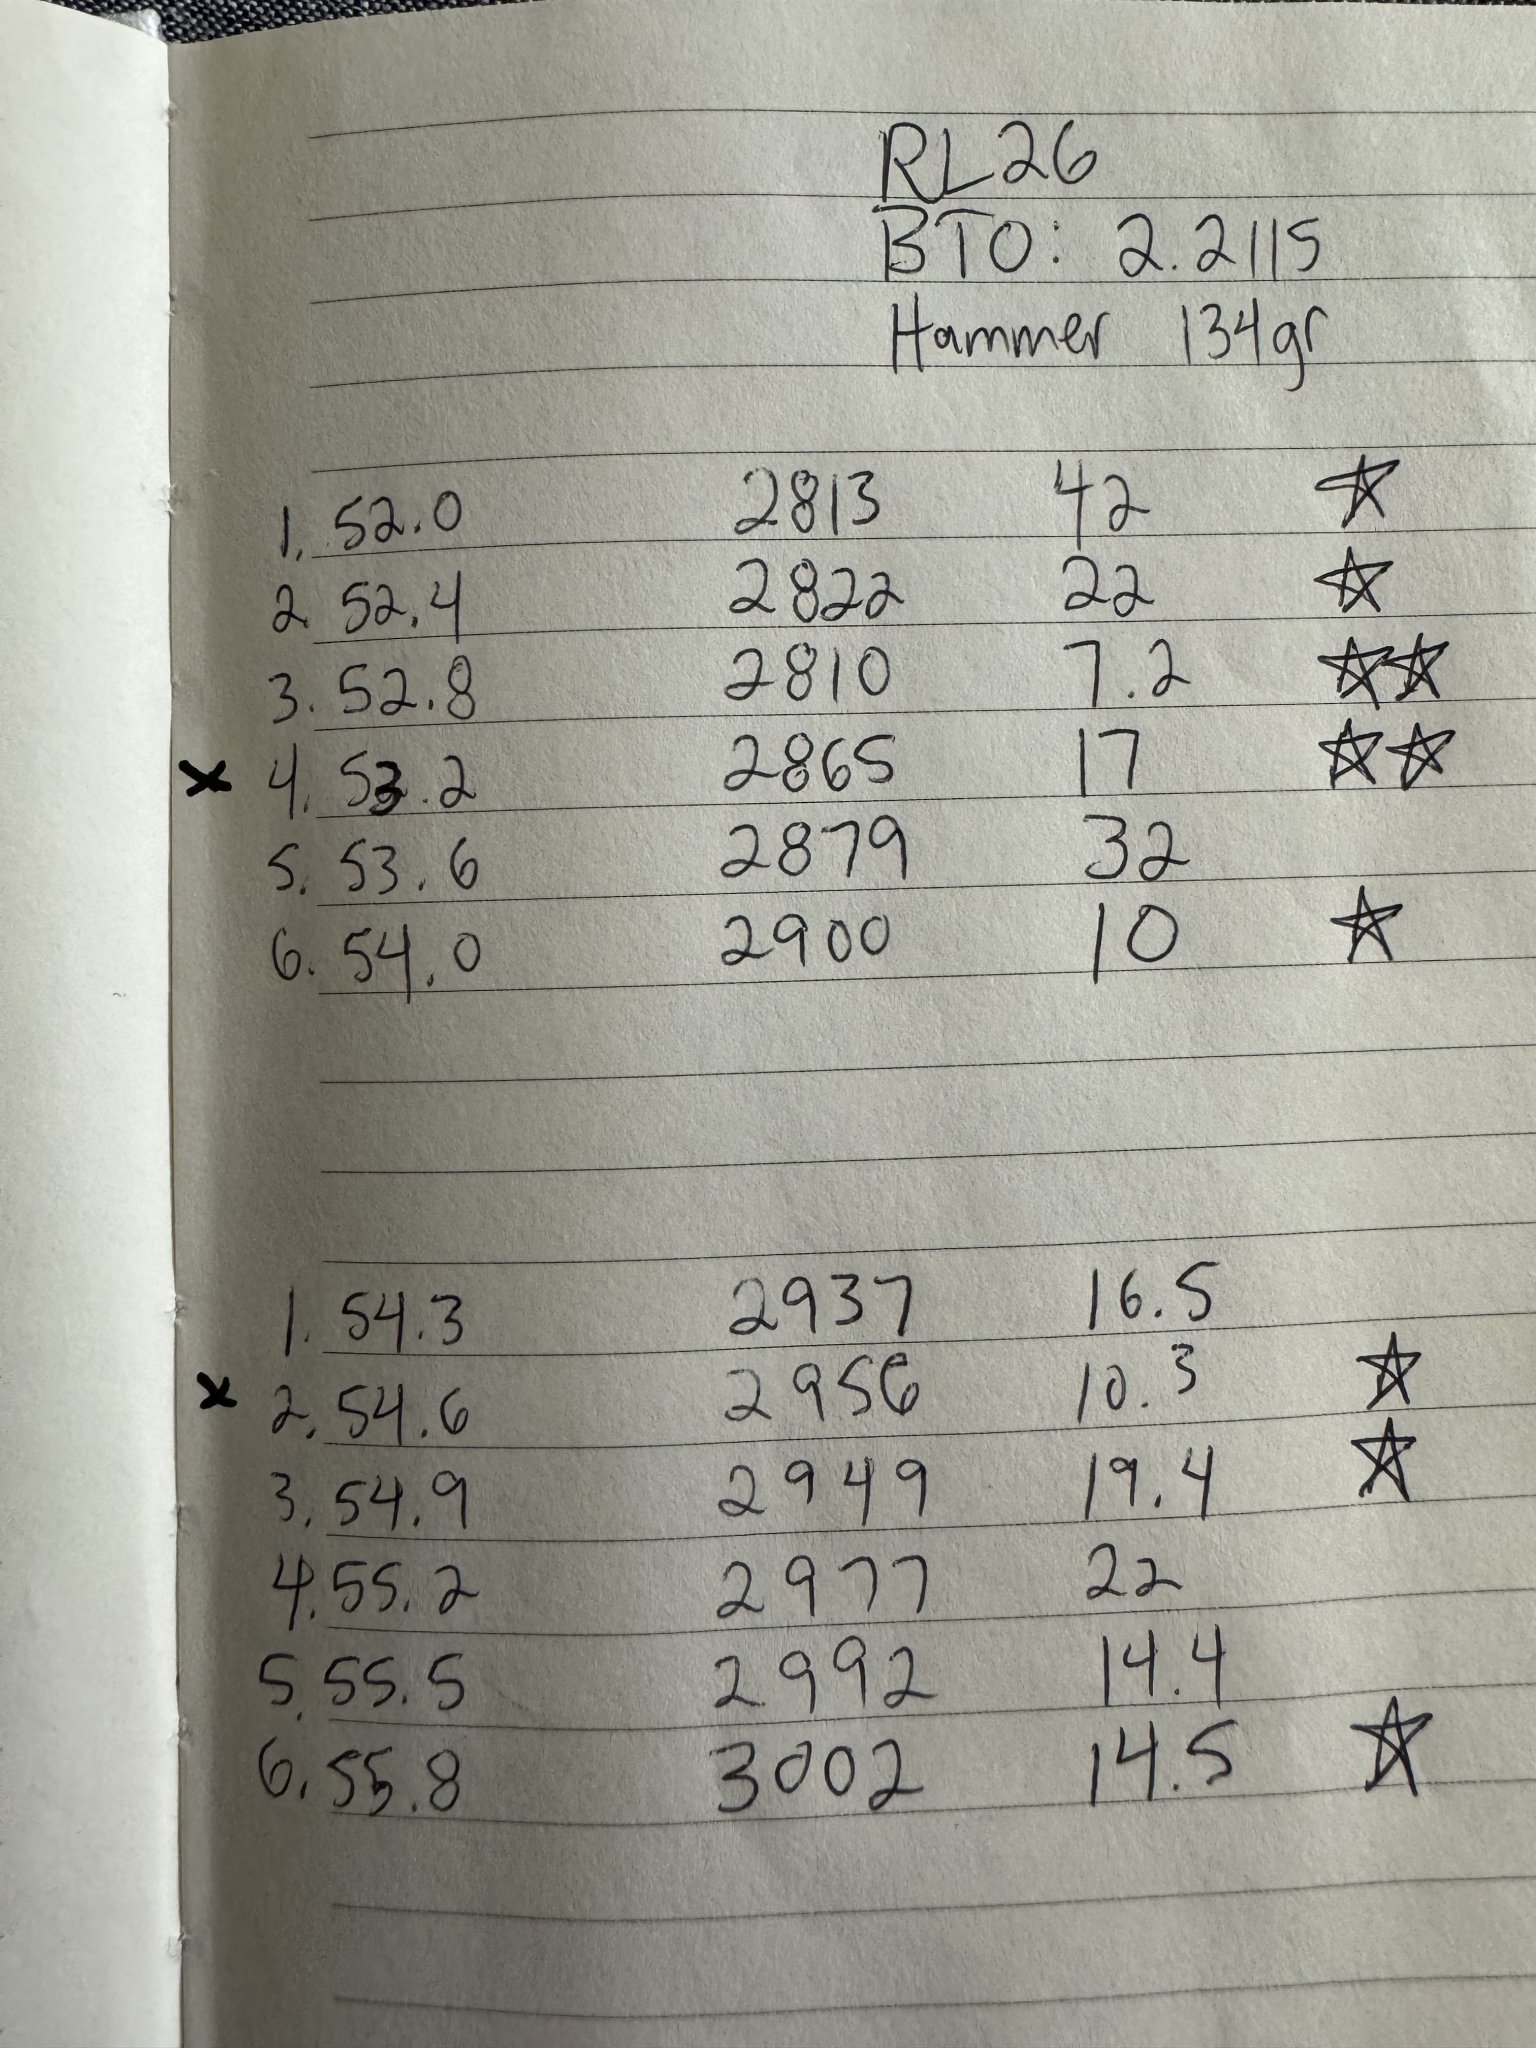 RL26
BTO: 2.2115
Hammer 134gr
1. 52.0 2813 42 ☆
2. 52.4 2822 22 ☆
3. 52.8 2810 7.2 ☆☆
x 4. 53.2 2865 17 ☆☆
5. 53.6 2879 32
6. 54.0 2900 10 ☆
1. 54.3 2937 16.5
x 2. 54.6 2956 10.3 ☆
3. 54.9 2949 19.4 ☆
4. 55.2 2977 22
5. 55.5 2992 14.4
6. 55.8 3002 14.5 ☆